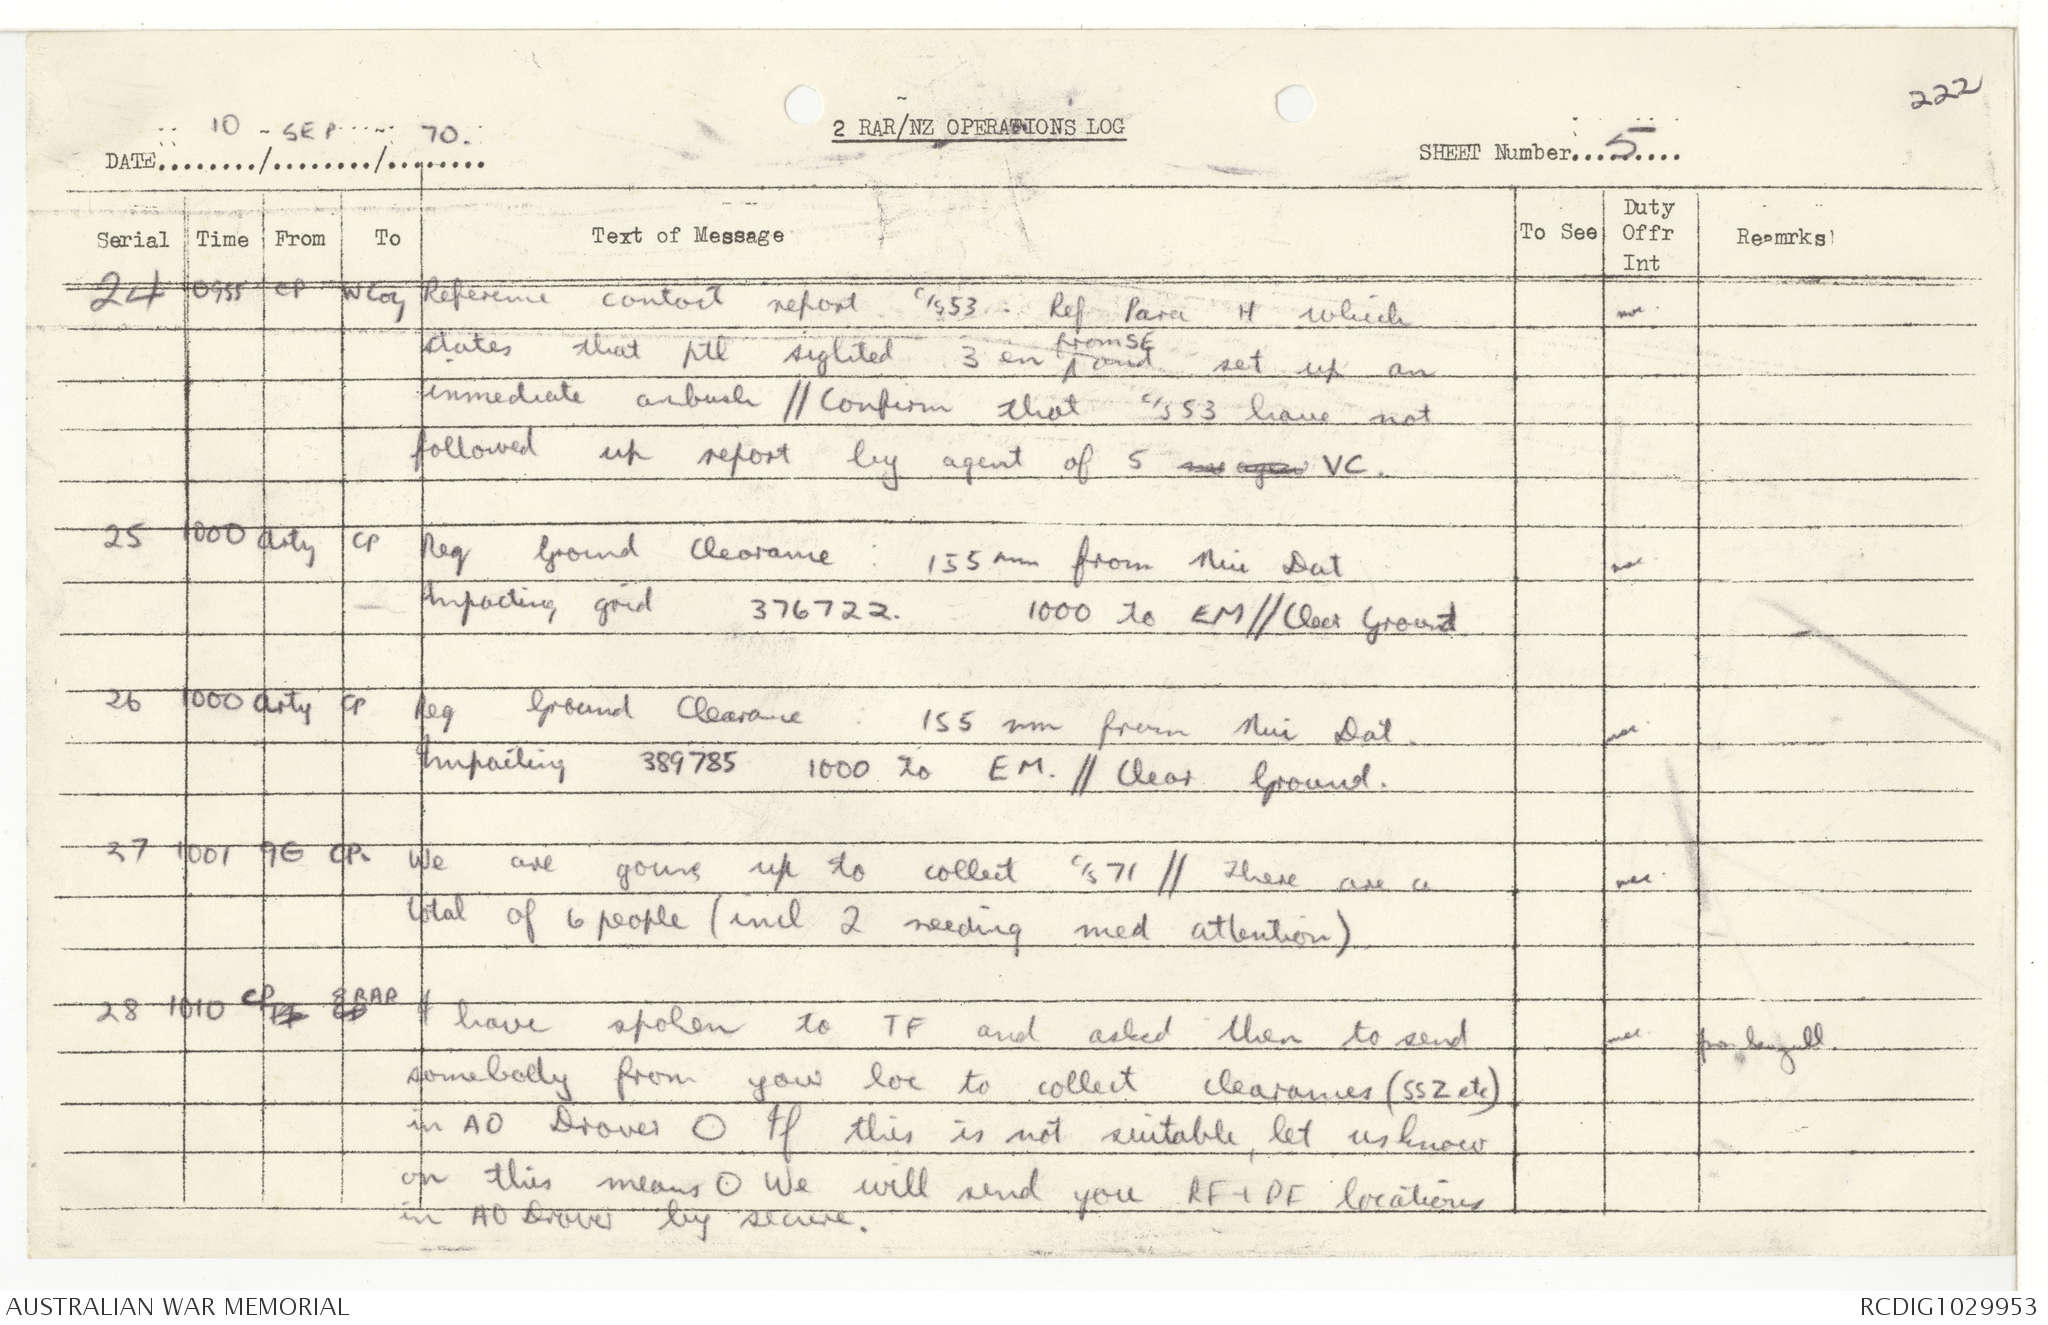 222
10 SEP 70.
DATE......../......../........
2 RAR/NZ OPERATIONS LOG
SHEET Number....5....
Serial Time From To Text of Message To See Duty Offr Int Remrks
24 0955 CP W Coy Reference contact report C/S53. Ref Para H which
states that ptl sighted 3 en from SE and set up an
immediate ambush // Confirm that C/S 53 have not
followed up report by agent of 5 VC.
25 1000 Arty CP Req Ground Clearance : 155 mm from Nui Dat
Impacting grid 376722. 1000 to EM // Clear Ground
26 1000 Arty CP Req Ground Clearance : 155 mm from Nui Dat.
Impacting 389785 1000 to EM. // Clear Ground.
27 1001 CP. We are going up to collect C/S 71 // There are a
total of 6 people (incl 2 needing med attention)
28 1010 CP 8RAR I have spoken to TF and asked then to send
somebody from your loc to collect clearances (SSZ etc)
in AO Drover O If this is not suitable, let us know
on this means O We will send you RF + PF locations
in AO Drover by secure.
AUSTRALIAN WAR MEMORIAL
RCDIG1029953